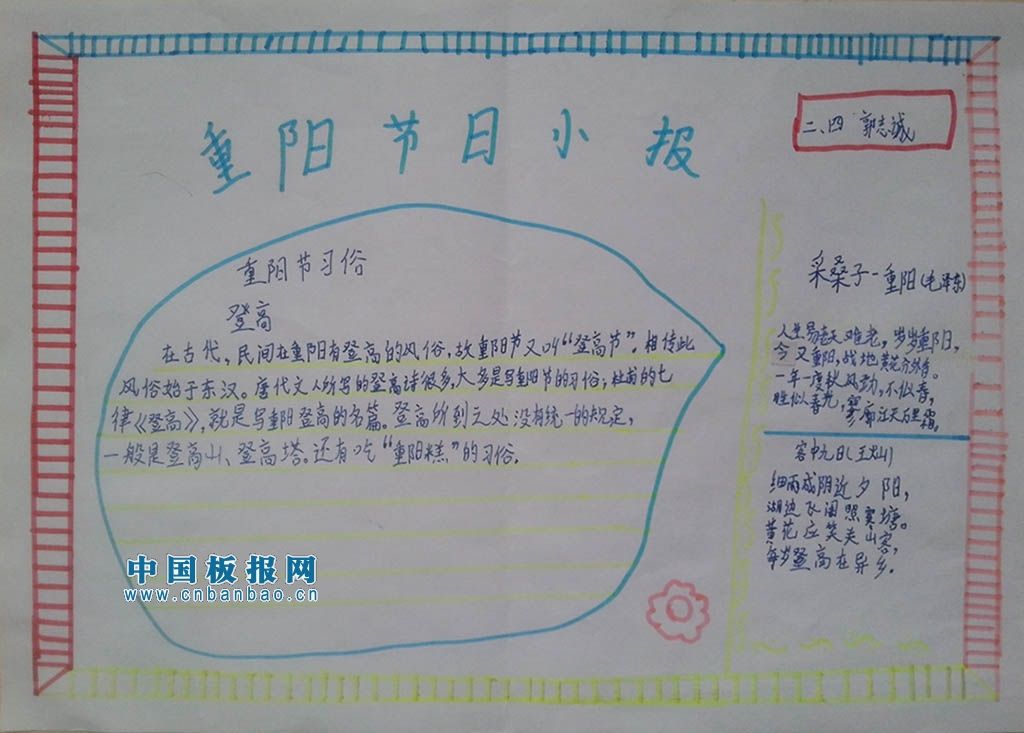 重阳节日小报
二、四 郭志诚
重阳节习俗
登高
在古代，民间在重阳有登高的风俗，故重阳节又叫“登高节”。相传此
风俗始于东汉。唐代文人所写的登高诗很多，大多是写重阳节的习俗；杜甫的七
律《登高》，就是写重阳登高的名篇。登高所到之处没有统一的规定，
一般是登高山、登高塔。还有吃“重阳糕”的习俗。
采桑子-重阳(毛泽东)
人生易老天难老，岁岁重阳，
今又重阳，战地黄花分外香。
一年一度秋风劲，不似春，
胜似春光，寥廓江天万里霜。
客中九日(王灿)
细雨成阴近夕阳，
湖边飞阁照寒塘。
黄花应笑关山客，
每岁登高在异乡。
中国板报网
www.cnbanbao.cn